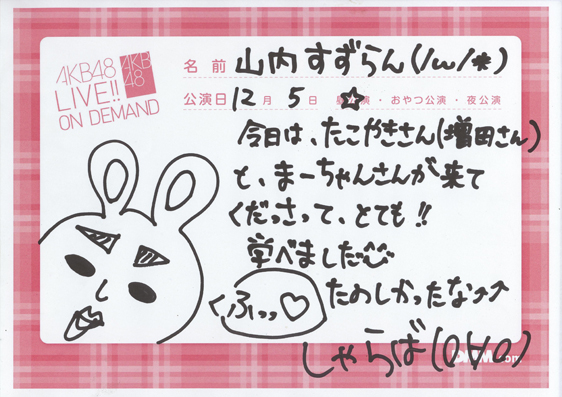 AKB48
LIVE!!
ON DEMAND
AKB
48
名前 山内すずらん(/ω/*)
公演日 12月5日 ☆公演・おやつ公演・夜公演
今日は、たこやきさん(増田さん)
と、まーちゃんさんが来て
くだっさって、とても!!
学べました^^
たのしかったな↑↑
ふっ♡
しゃらば(0∀0)
.com